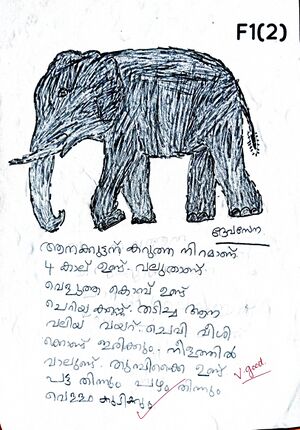 F1(2)
ദേവസേന
ആനക്കുട്ടന് കറുത്ത നിറമാണ്
4 കാല് ഉണ്ട്. വലുതാണ്
വെളുത്ത കൊമ്പ് ഉണ്ട്
ചെറിയ കണ്ണ്. തടിച്ച ആന
വലിയ വയറ്. ചെവി വീശി
ക്കൊണ്ട് ഇരിക്കും. നീളത്തിൽ
വാലുണ്ട്. തുമ്പിക്കൈ ഉണ്ട്
പട്ട തിന്നും പഴം തിന്നും
വെള്ളം കുടിക്കും
V.good